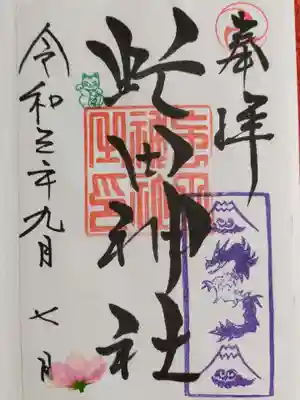 奉拝
虻田神社
令和三年九月 七日